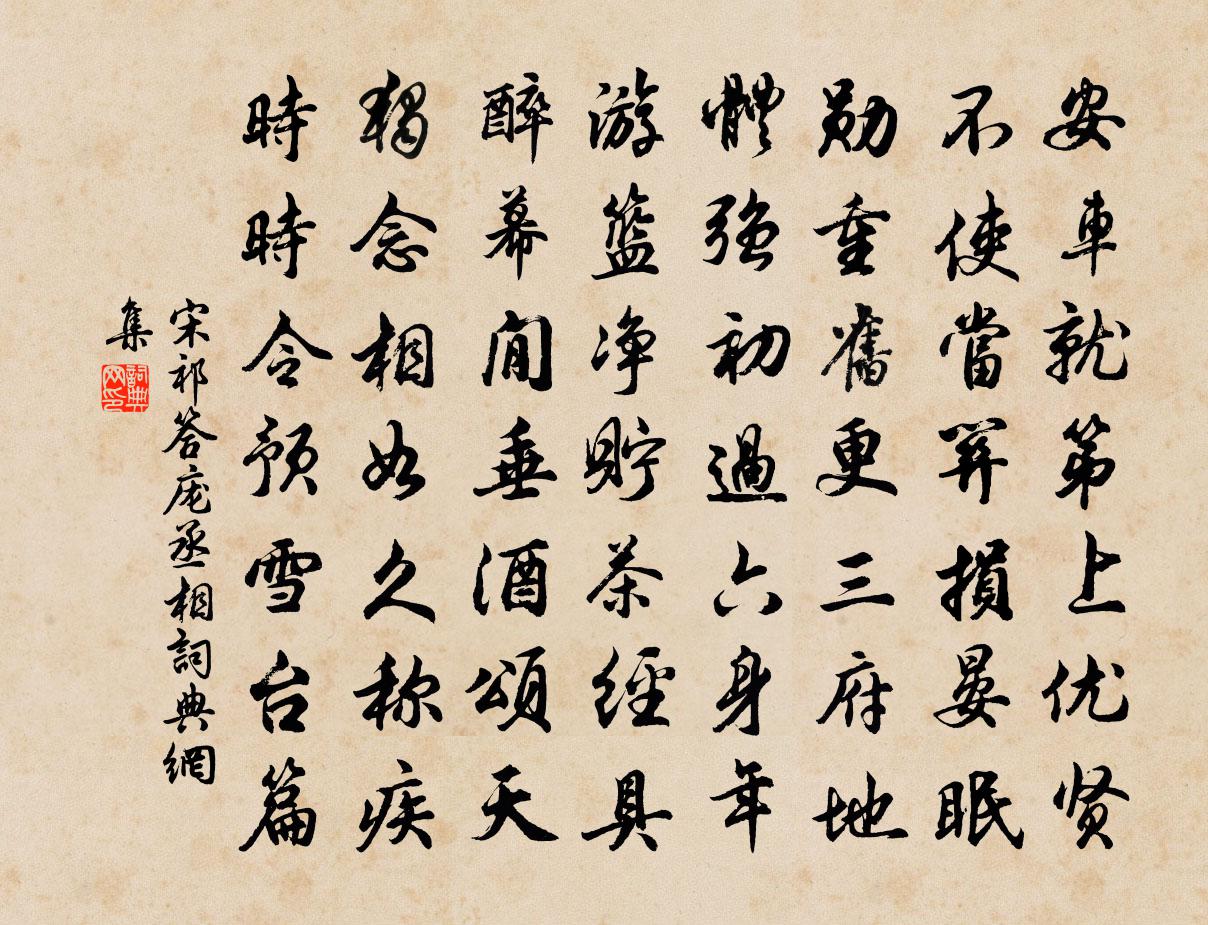 安車就第上优贤
不使當筭損晏眠
勋重舊更三府地
體強初過六身年
游籃净貯茶經具
醉幕間垂酒頌天
獨念相如久称疾
時時令预雪台篇
宋祁答庞丞相詞典網
集
詞典网印